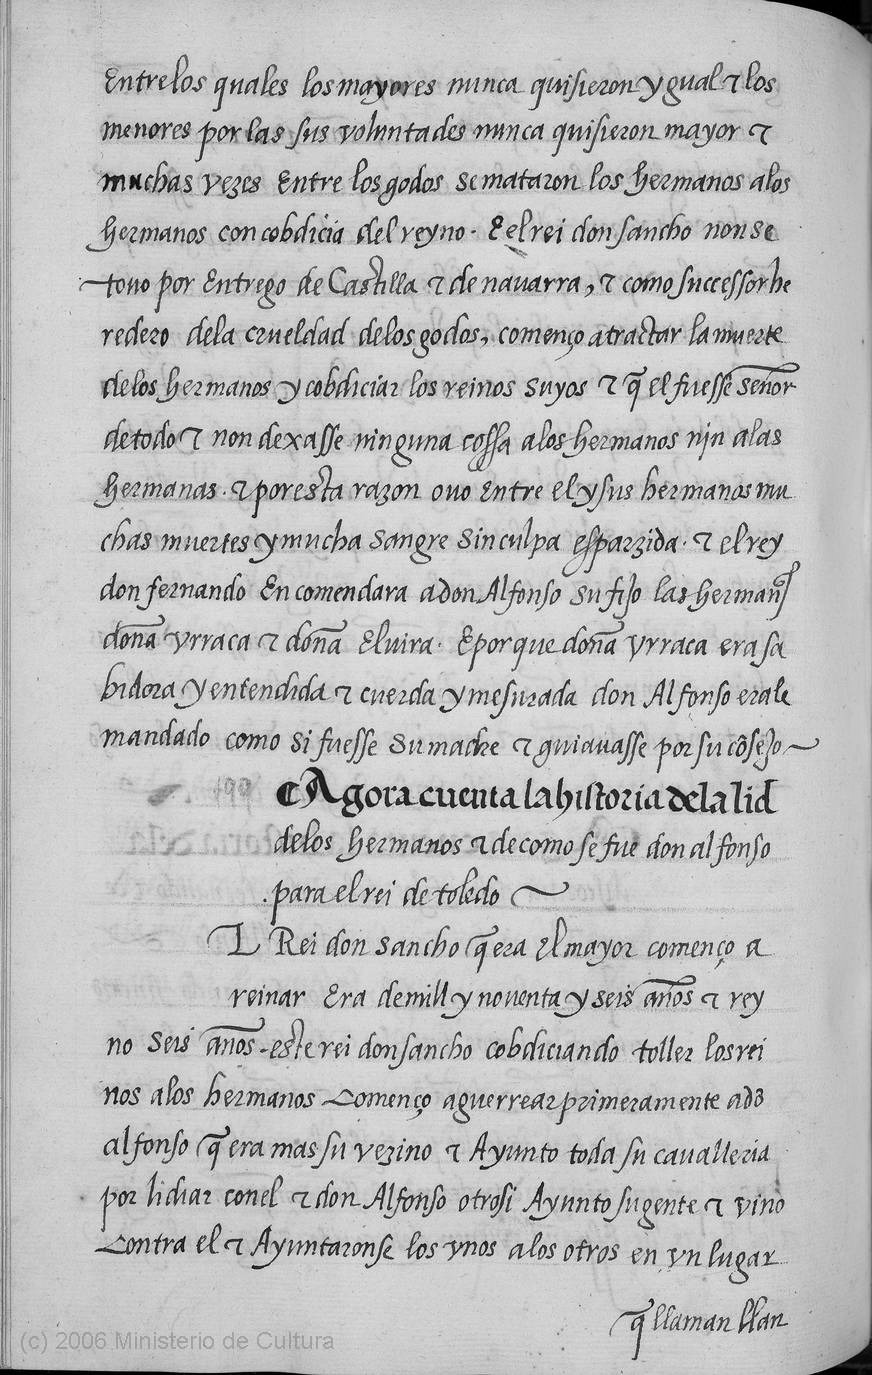 Entrelos quales los mayores nunca quisieron ygual τ los
menores por las sus voluntades nunca quisieron mayor τ
muchas vezes Entre los godos se mataron los hermanos alos
hermanos con cobdiçia del reyno. E el rei don sancho non se
touo por Entrego de Castilla τ de navarra, τ como successor he
redero dela crueldad delos godos, començo atractar la muerte
delos hermanos y cobdiciar los reinos suyos τ q̃ el fuesse señor
de todo τ non dexasse ninguna cossa alos hermanos nin alas
hermanas. τ por esta razon ouo Entre el y sus hermanos mu
chas muertes y mucha sangre sin culpa esparzida. τ el rey
don fernando Encomendara adon Alfonso su fijo las hermanas
doña vrraca τ doña Eluira. E porque doña Vrraca era sa
bidora y entendida τ cuerda y mesurada don Alfonso erale
mandado como si fuesse su madre τ guiauasse por su cõsejo
199
Agora cuenta la historia de la lid
delos hermanos τ de como se fue don alfonso
para el rei de toledo
L Rei don sancho q̃ era El mayor començo a
reinar Era de mill y noventa y seis años τ rey
no seis años. este rei don sancho cobdiciando toller los rei
nos alos hermanos Començo aguerrear primeramente adõ
alfonso q̃ era mas su vezino τ Ayunto toda su caualleria
por lidiar conel τ don Alfonso otrosi Ayunto su gente τ vino
Contra el τ Ayuntaronse los vnos alos otros en vn lugar
q̃ llaman llan
(c) 2006 Ministerio de Cultura